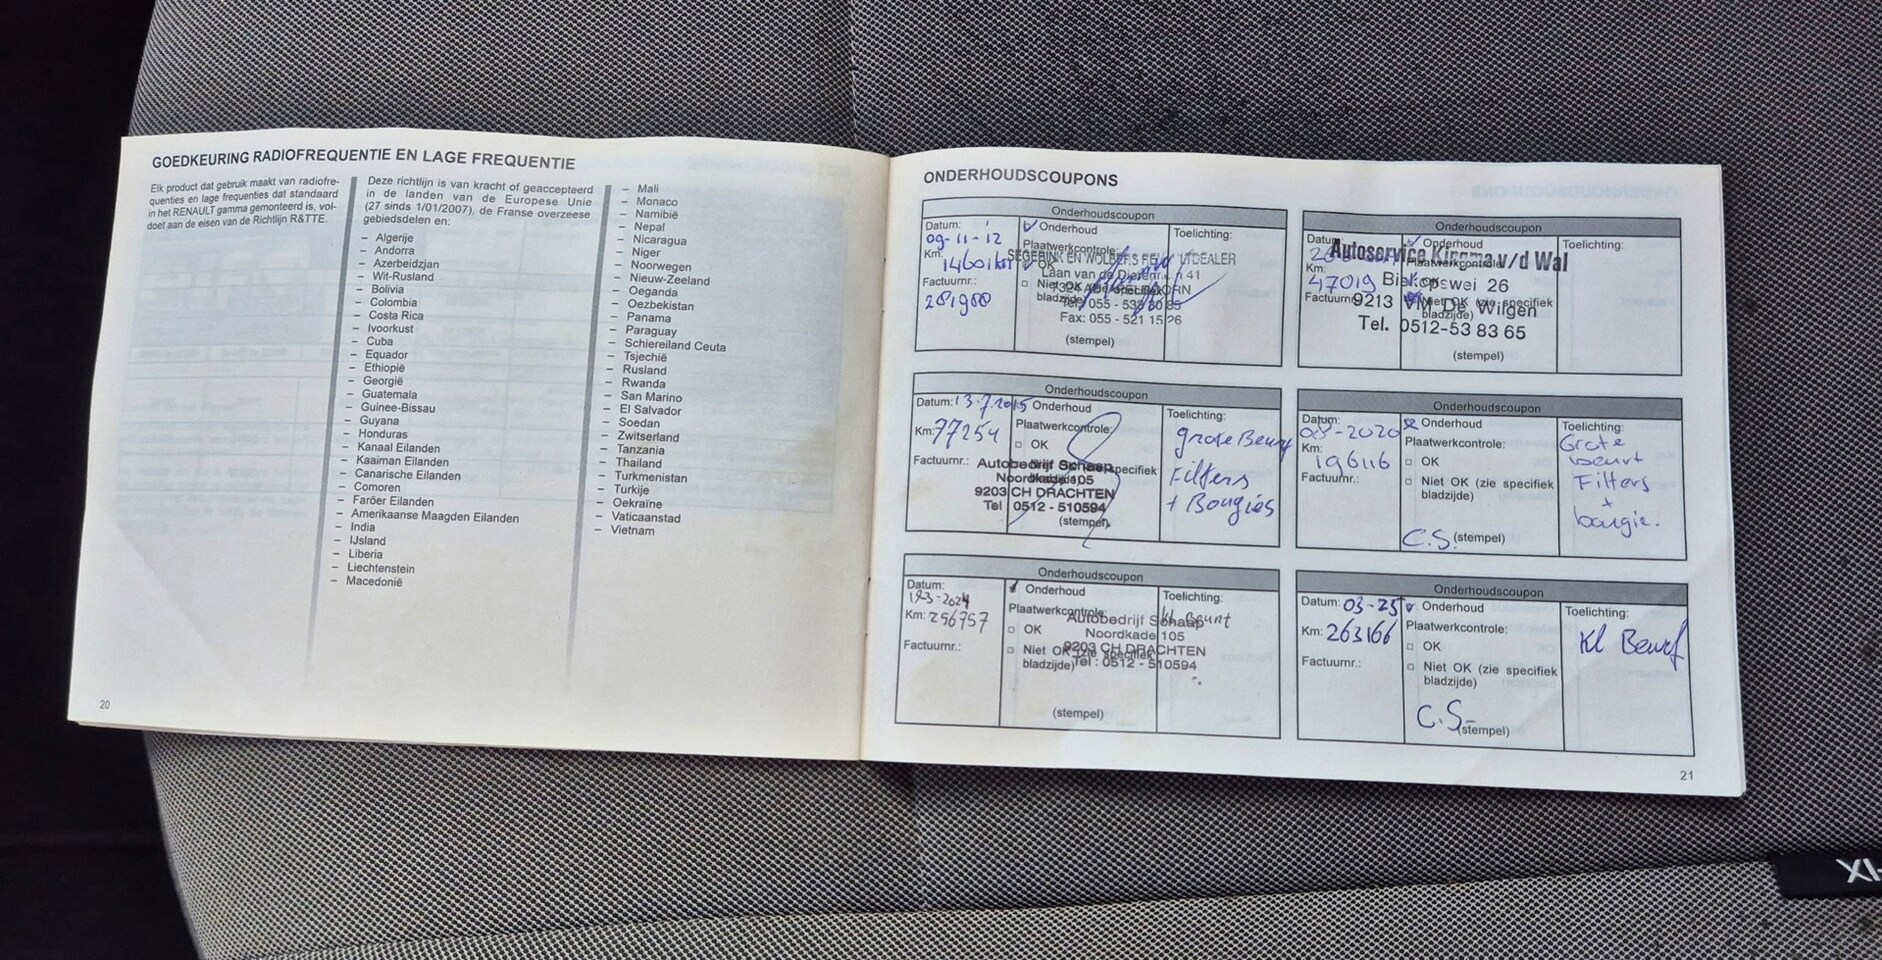 GOEDKEURING RADIOFREQUENTIE EN LAGE FREQUENTIE
Elk product dat gebruik maakt van radiofre-
quenties en lage frequenties dat standaard
in het RENAULT gamma gemonteerd is, vol-
doet aan de eisen van de Richtlijn R&TTE.
Deze richtlijn is van kracht of geaccepteerd
in de landen van de Europese Unie
(27 sinds 1/01/2007), de Franse overzeese
gebiedsdelen en:
– Algerije
– Andorra
– Azerbeidzjan
– Wit-Rusland
– Bolivia
– Colombia
– Costa Rica
– Ivoorkust
– Cuba
– Equador
– Ethiopië
– Georgië
– Guatemala
– Guinee-Bissau
– Guyana
– Honduras
– Kanaal Eilanden
– Kaaiman Eilanden
– Canarische Eilanden
– Comoren
– Faröer Eilanden
– Amerikaanse Maagden Eilanden
– India
– IJsland
– Liberia
– Liechtenstein
– Macedonië
– Mali
– Monaco
– Namibië
– Nepal
– Nicaragua
– Niger
– Noorwegen
– Nieuw-Zeeland
– Oeganda
– Oezbekistan
– Panama
– Paraguay
– Schiereiland Ceuta
– Tsjechië
– Rusland
– Rwanda
– San Marino
– El Salvador
– Soedan
– Zwitserland
– Tanzania
– Thailand
– Turkmenistan
– Turkije
– Oekraïne
– Vaticaanstad
– Vietnam
20
ONDERHOUDSCOUPONS
Onderhoudscoupon
Datum:
09-11-12
Km:
14601km
Factuurnr.:
281988
Onderhoud
Plaatwerkcontrole:
OK
Niet OK (zie specifiek
bladzijde)
Laan van de Dierenriem 41
Tel: 055 - 533 80 85
Fax: 055 - 521 15 26
(stempel)
Toelichting:
Onderhoudscoupon
Datum:
Km:
47019
Factuurnr.:
Onderhoud
Plaatwerkcontrole:
Niet OK (zie specifiek
bladzijde)
Autoservice Kingma v/d Wal
Biskopswei 26
9213 VM De Wilgen
Tel. 0512-53 83 65
(stempel)
Toelichting:
Onderhoudscoupon
Datum: 13-7-2015
Km: 77254
Factuurnr.:
Onderhoud
Plaatwerkcontrole:
OK
Autobedrijf Schaap
Noordkade 105
9203 CH DRACHTEN
Tel 0512 - 510594
(stempel)
Toelichting:
grote Beurt
Filters
+ Bougies
Onderhoudscoupon
Datum:
Km:
196116
Factuurnr.:
Onderhoud
Plaatwerkcontrole:
OK
Niet OK (zie specifiek
bladzijde)
C.S. (stempel)
Toelichting:
Grote
beurt
Filters
+
bougie.
Onderhoudscoupon
Datum:
Km: 256757
Factuurnr.:
Onderhoud
Plaatwerkcontrole:
OK
Niet OK (zie specifiek
bladzijde)
Autobedrijf Schaap
Noordkade 105
9203 CH DRACHTEN
Tel : 0512 - 510594
(stempel)
Toelichting:
Kl Beurt
Onderhoudscoupon
Datum: 03-25
Km: 263166
Factuurnr.:
Onderhoud
Plaatwerkcontrole:
OK
Niet OK (zie specifiek
bladzijde)
C.S. (stempel)
Toelichting:
Kl Beurt
21